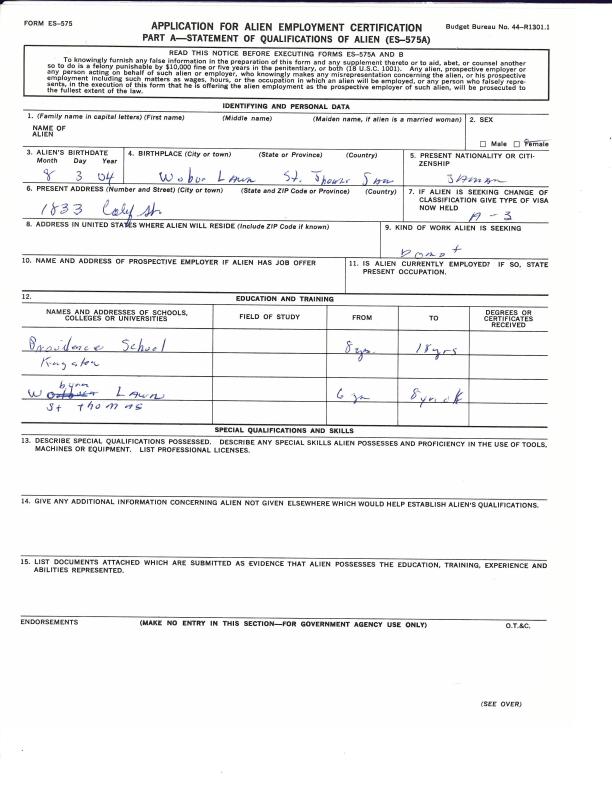 FORM ES-575
APPLICATION FOR ALIEN EMPLOYMENT CERTIFICATION
Budget Bureau No. 44-R1301.1
PART A—STATEMENT OF QUALIFICATIONS OF ALIEN (ES-575A)
READ THIS NOTICE BEFORE EXECUTING FORMS ES-575A AND B
To knowingly furnish any false information in the preparation of this form and any supplement thereto or to aid, abet, or counsel another
so to do is a felony punishable by $10,000 fine or five years in the penitentiary, or both (18 U.S.C. 1001). Any alien, prospective employer or
any person acting on behalf of such alien or employer, who knowingly makes any misrepresentation concerning the alien, or his prospective
employment including such matters as wages, hours, or the occupation in which an alien will be employed, or any person who falsely repre-
sents, in the execution of this form that he is offering the alien employment as the prospective employer of such alien, will be prosecuted to
the fullest extent of the law.
IDENTIFYING AND PERSONAL DATA
1. (Family name in capital letters) (First name) (Middle name) (Maiden name, if alien is a married woman)
NAME OF
ALIEN
2. SEX
Male Female
3. ALIEN'S BIRTHDATE
Month Day Year
8 3 04
4. BIRTHPLACE (City or town) (State or Province) (Country)
Lawn St.
5. PRESENT NATIONALITY OR CITI-
ZENSHIP
6. PRESENT ADDRESS (Number and Street) (City or town) (State and ZIP Code or Province) (Country)
1833
7. IF ALIEN IS SEEKING CHANGE OF
CLASSIFICATION GIVE TYPE OF VISA
NOW HELD
A-3
8. ADDRESS IN UNITED STATES WHERE ALIEN WILL RESIDE (Include ZIP Code if known)
9. KIND OF WORK ALIEN IS SEEKING
10. NAME AND ADDRESS OF PROSPECTIVE EMPLOYER IF ALIEN HAS JOB OFFER
11. IS ALIEN CURRENTLY EMPLOYED? IF SO, STATE
PRESENT OCCUPATION.
12. EDUCATION AND TRAINING
NAMES AND ADDRESSES OF SCHOOLS,
COLLEGES OR UNIVERSITIES
FIELD OF STUDY
FROM
TO
DEGREES OR
CERTIFICATES
RECEIVED
Providence School 18 yrs
Kingston
Lawn
St Thomas
SPECIAL QUALIFICATIONS AND SKILLS
13. DESCRIBE SPECIAL QUALIFICATIONS POSSESSED. DESCRIBE ANY SPECIAL SKILLS ALIEN POSSESSES AND PROFICIENCY IN THE USE OF TOOLS,
MACHINES OR EQUIPMENT. LIST PROFESSIONAL LICENSES.
14. GIVE ANY ADDITIONAL INFORMATION CONCERNING ALIEN NOT GIVEN ELSEWHERE WHICH WOULD HELP ESTABLISH ALIEN'S QUALIFICATIONS.
15. LIST DOCUMENTS ATTACHED WHICH ARE SUBMITTED AS EVIDENCE THAT ALIEN POSSESSES THE EDUCATION, TRAINING, EXPERIENCE AND
ABILITIES REPRESENTED.
ENDORSEMENTS (MAKE NO ENTRY IN THIS SECTION—FOR GOVERNMENT AGENCY USE ONLY) O.T.&C.
(SEE OVER)